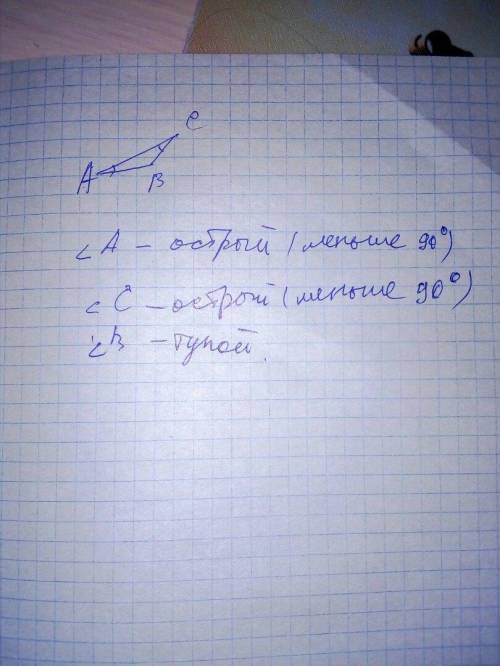 C
A
B
∠A – острый (меньше 90°)
∠C – острый (меньше 90°)
∠B – тупой.